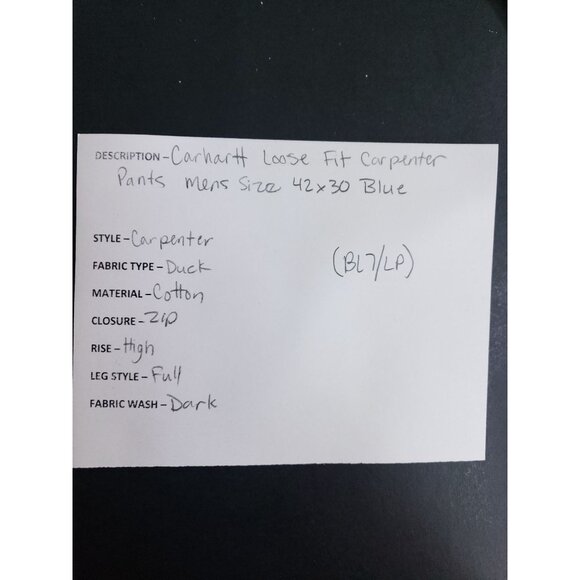 DESCRIPTION - Carhartt Loose Fit Carpenter
Pants Mens Size 42x30 Blue
STYLE - Carpenter
FABRIC TYPE - Duck
(BL7/LP)
MATERIAL - Cotton
CLOSURE - Zip
RISE - High
LEG STYLE - Full
FABRIC WASH - Dark